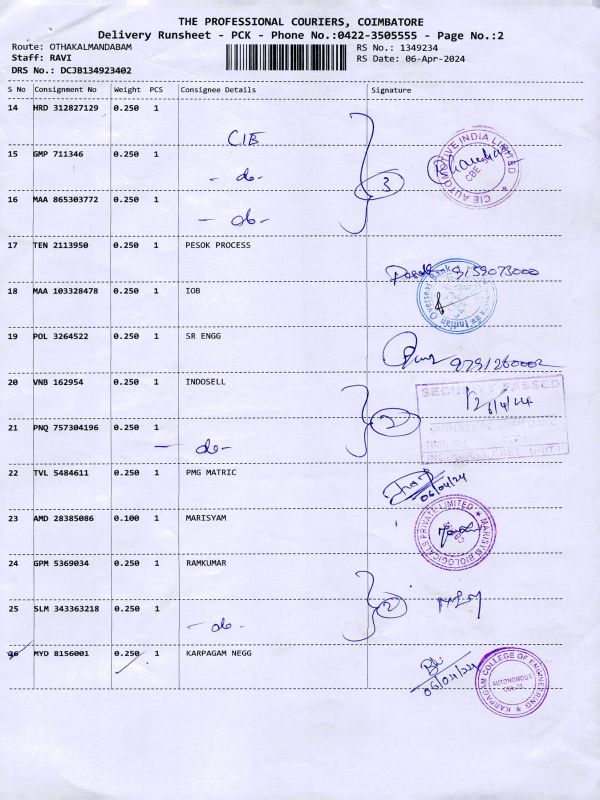 THE PROFESSIONAL COURIERS, COIMBATORE
Delivery Runsheet - PCK - Phone No.:0422-3505555 - Page No.:2
Route: OTHAKALMANDABAM
Staff: RAVI
DRS No.: DCJB134923402
RS No.: 1349234
RS Date: 06-Apr-2024
S No Consignment No Weight PCS Consignee Details Signature
14 HRD 312827129 0.250 1
CIE
15 GMP 711346 0.250 1
- do -
3
CIE AUTOMOTIVE INDIA LIMITED
CBE
16 MAA 865303772 0.250 1
- do -
17 TEN 2113950 0.250 1 PESOK PROCESS
9159073000
18 MAA 103328478 0.250 1 IOB
Indian Overseas Bank
19 POL 3264522 0.250 1 SR ENGG
20 VNB 162954 0.250 1 INDOSELL
SECURITY PASSED
6/4/24
2
21 PNQ 757304196 0.250 1
- do -
22 TVL 5484611 0.250 1 PMG MATRIC
06/04/24
23 AMD 28385086 0.100 1 MARISYAM
BIOLOGICALS PRIVATE LIMITED
24 GPM 5369034 0.250 1 RAMKUMAR
2
25 SLM 343363218 0.250 1
- do -
26 MYD 8156001 0.250 1 KARPAGAM NEGG
06/04/24
KARPAGAM COLLEGE OF ENGINEERING
AUTONOMOUS